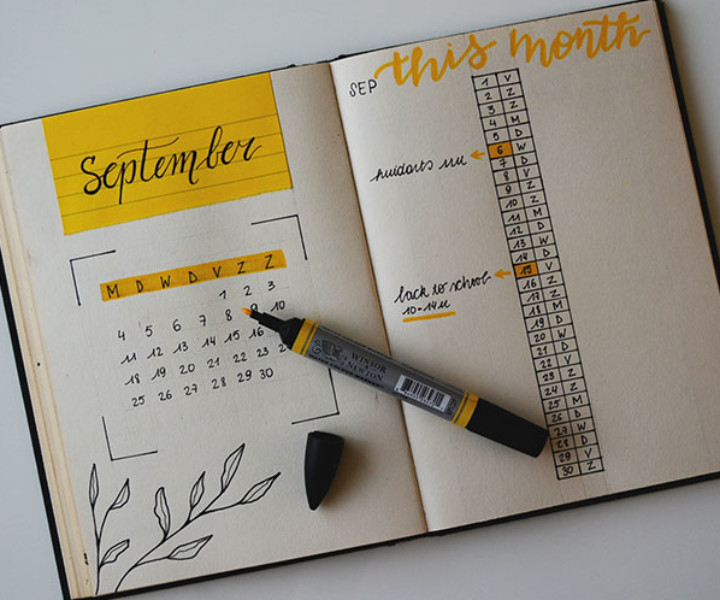 September
M D W D V Z Z
1 2 3
4 5 6 7 8 9 10
11 12 13 14 15 16
18 19 20 21 22 23
25 26 27 28 29 30
this month
SEP
1 V
2 Z
3 Z
4 M
5 D
6 W
huidarts
7 D
8 V
9 Z
10 Z
11 M
12 D
13 W
14 D
15 V
back to school
10-14u
16 Z
17 Z
18 M
19 D
20 W
21 D
22 V
23 Z
24 Z
25 M
26 D
27 W
28 D
29 V
30 Z
WINSOR
& NEWTON